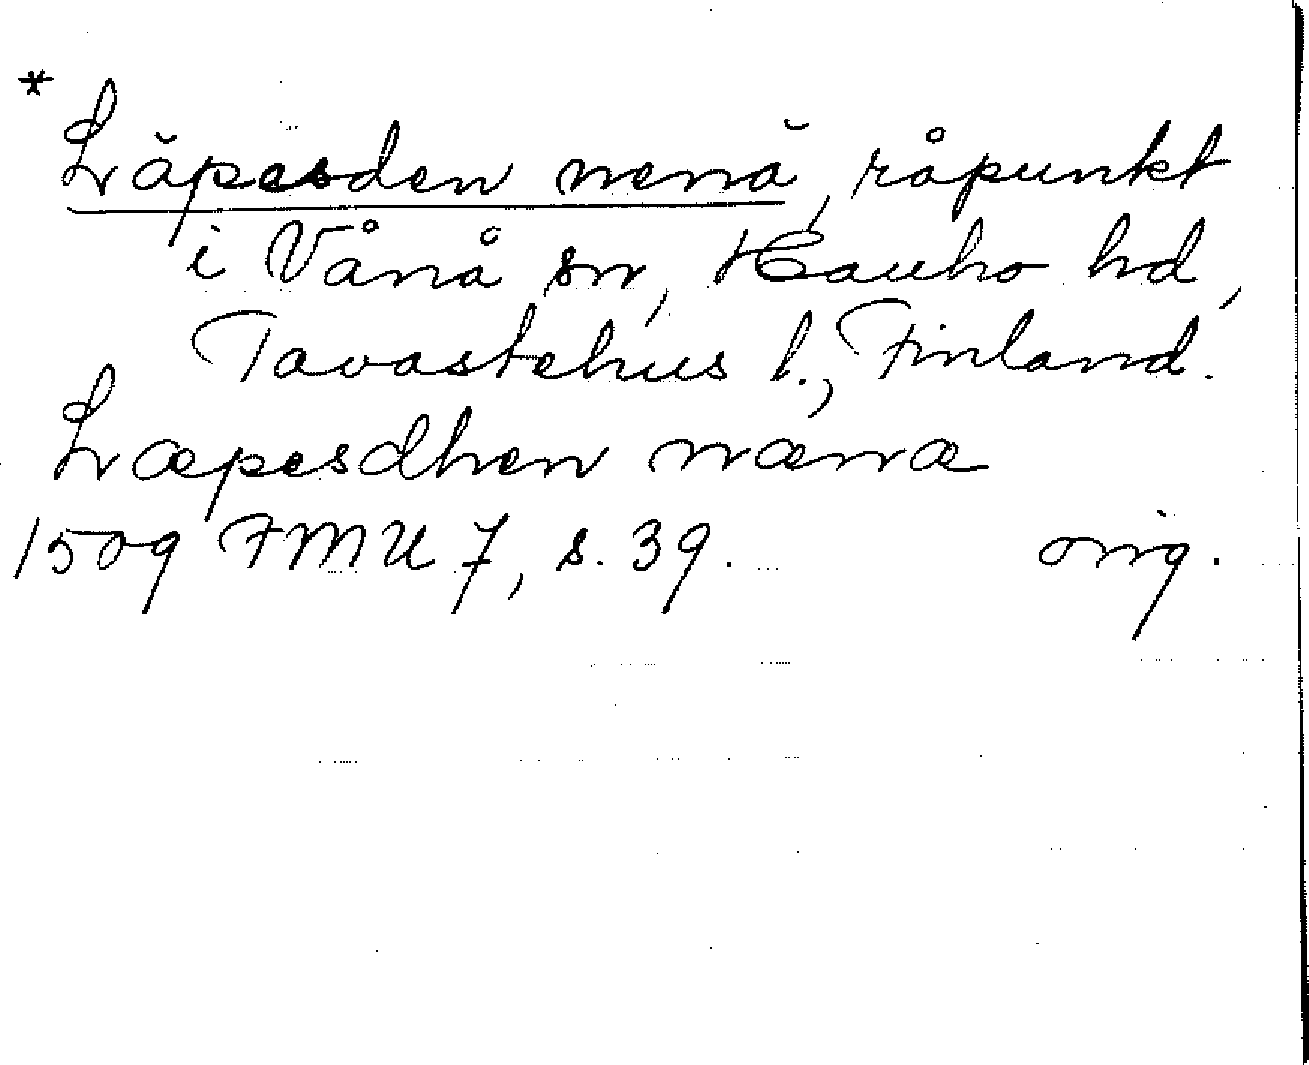 *
Läpesden nenä, råpunkt
i Vånå sn, Hauho hd,
Tavastehus l., Finland.
Læpesdhen nænæ
1509 FMU 7, s. 39. orig.